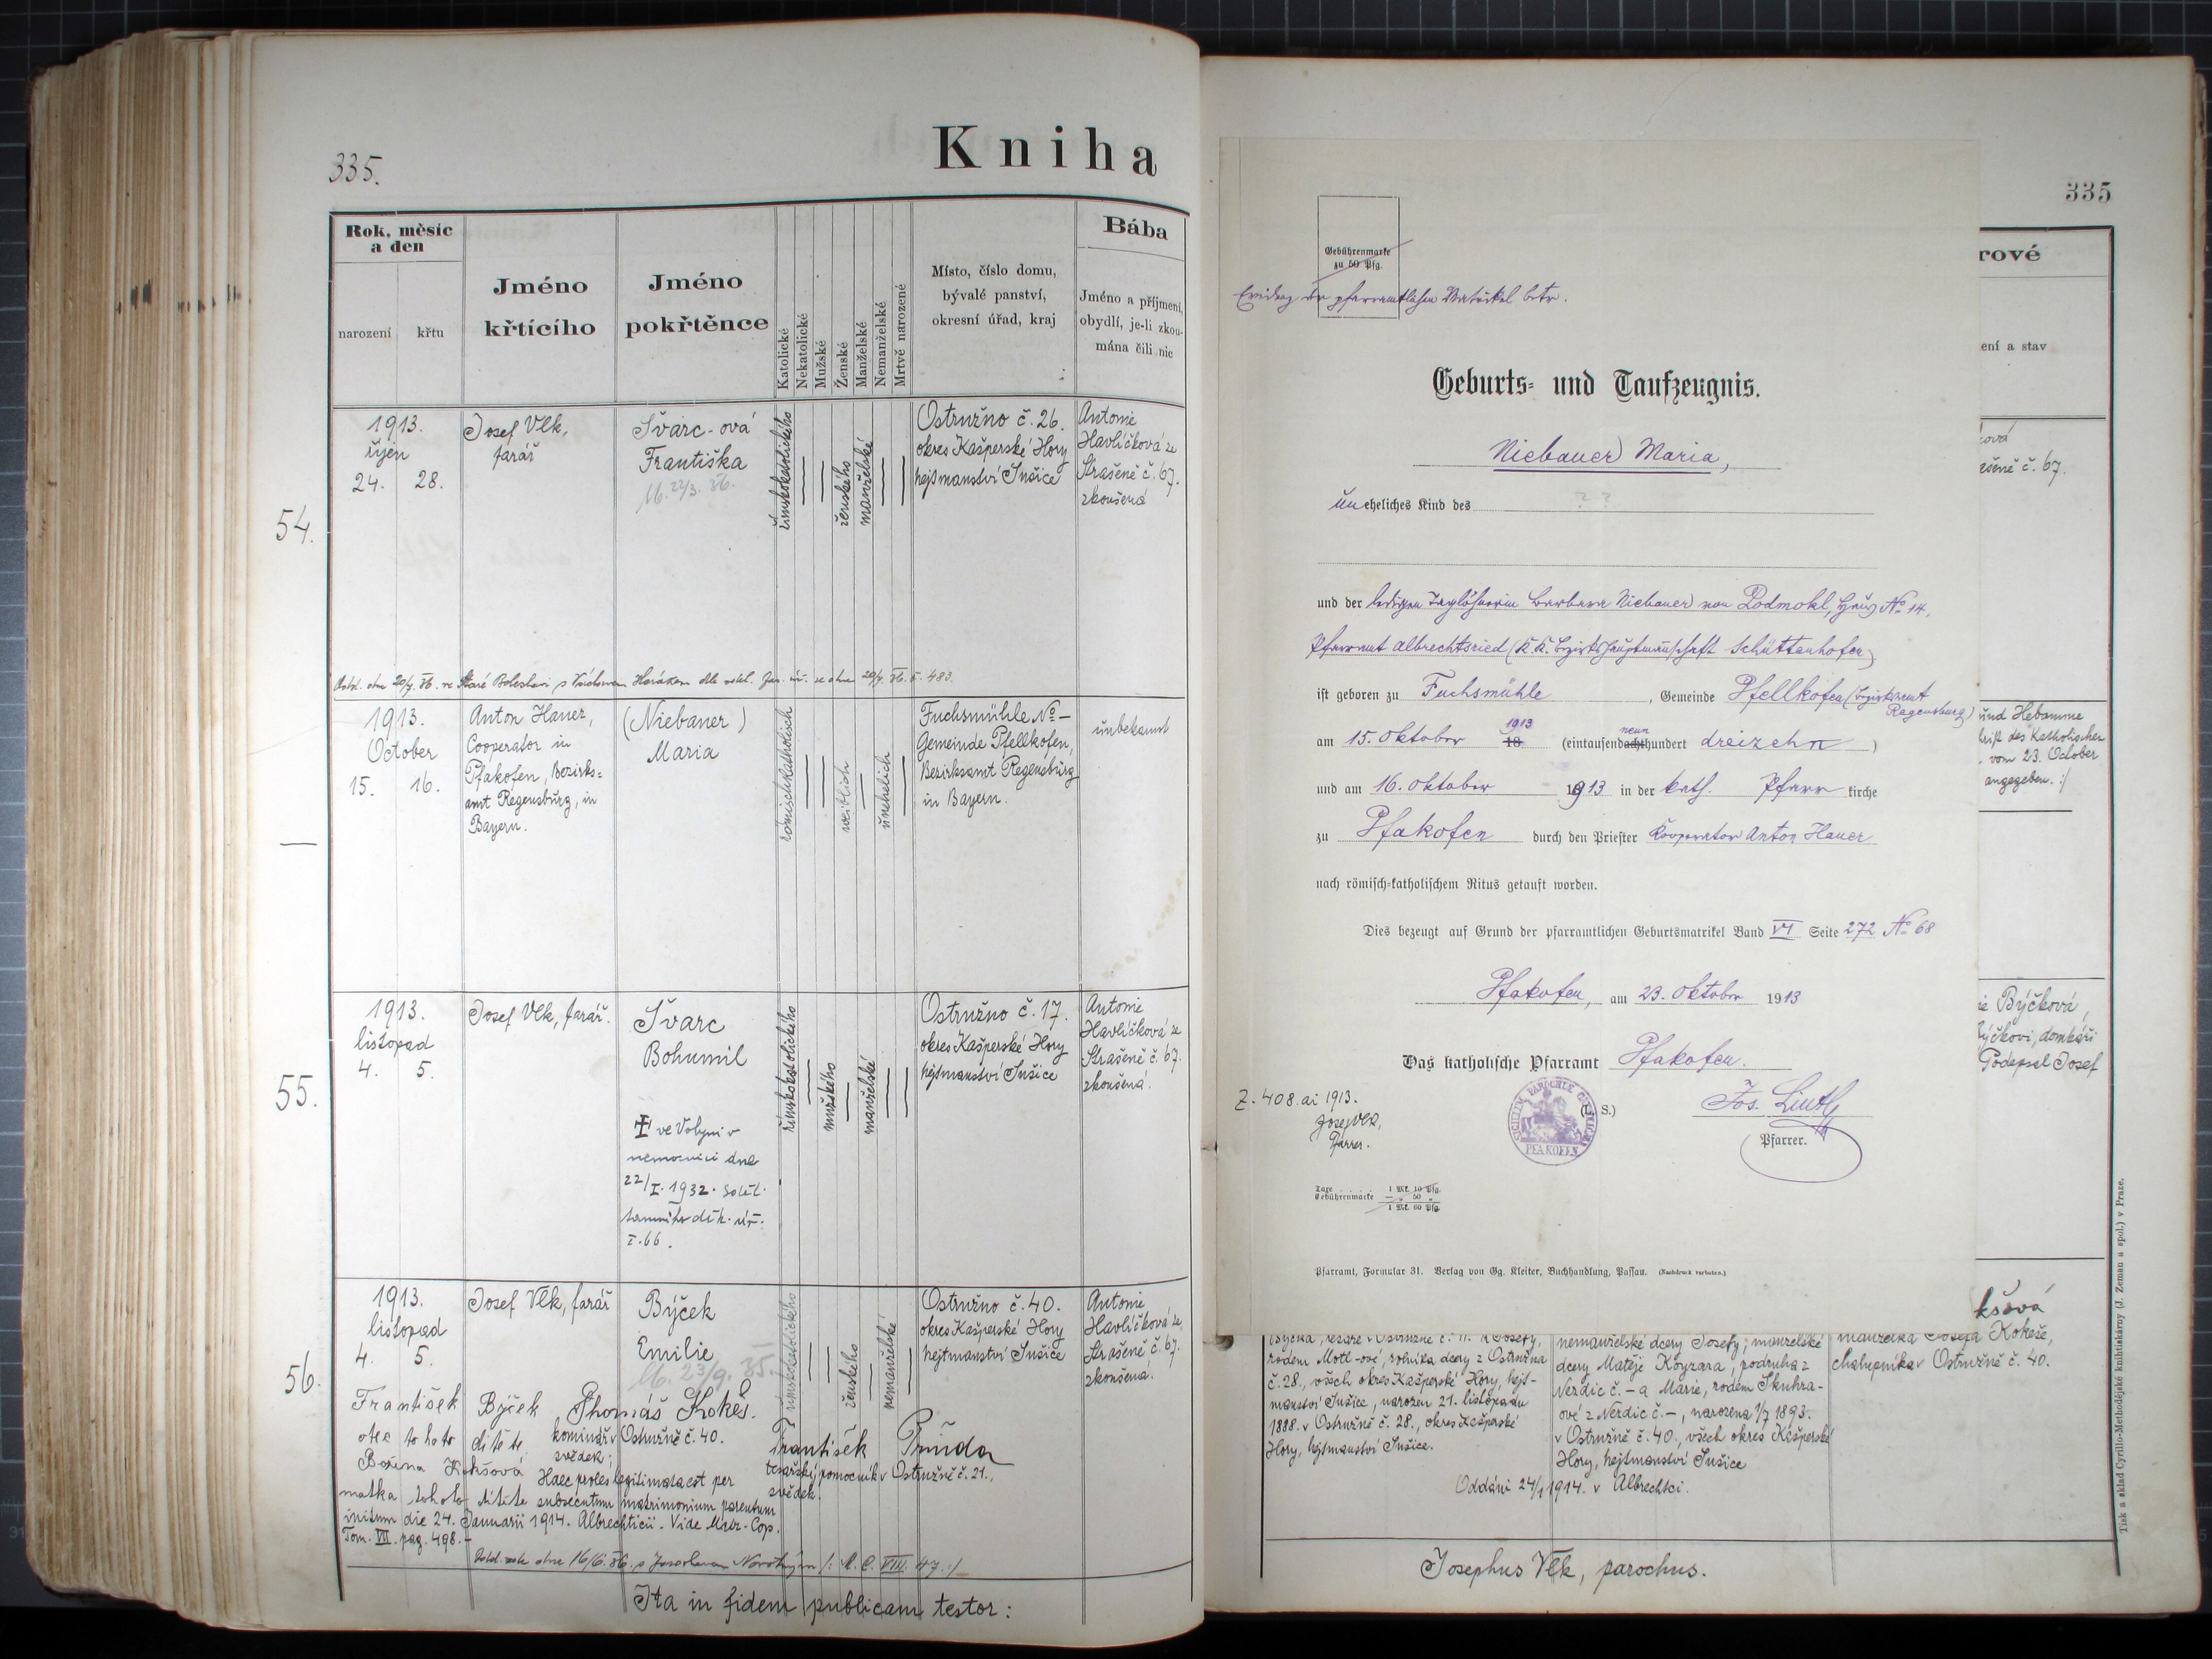 335.
Kniha
Rok, měsíc
a den
narození
křtu
Jméno
křtícího
Jméno
pokřtěnce
Katolické
Nekatolické
Mužské
Ženské
Manželské
Nemanželské
Mrtvě narozené
Místo, číslo domu,
bývalé panství,
okresní úřad, kraj
Bába
Jméno a příjmení,
obydlí, je-li zkou-
mána čili nic
54.
1913.
říjen
24. 28.
Josef Vlk,
farář
Švarc-ová
Františka
16. 22/3. 36.
římskokatolického
ženského
manželské
Ostružno č. 26.
okres Kašperské Hory
hejtmanství Sušice
Antonie
Havlíčková ze
Strašeně č. 67.
zkoušená
Odd. dne 20/4. 36. ve Staré Boleslavi s Václavem dle sděl. far. úř. ze dne 20/4. 36. č. 483.
—
1913.
October
15. 16.
Anton Hauer,
Cooperator in
Pfakofen, Bezirks=
amt Regensburg, in
Bayern.
(Niebauer)
Maria
römischkatholisch
weiblich
unehelich
Fuchsmühle No –
Gemeinde Pfellkofen,
Bezirksamt Regensburg
in Bayern.
unbekannt
55.
1913.
listopad
4. 5.
Josef Vlk, farář.
Švarc
Bohumil
✝ ve Volyni v
nemocnici dne
22/I. 1932. Sděl.
tamního děk. úř.
č. 66.
římskokatolického
mužského
manželské
Ostružno č. 17.
okres Kašperské Hory
hejtmanství Sušice
Antonie
Havlíčková ze
Strašeně č. 67.
zkoušená.
56.
1913.
listopad
4. 5.
Josef Vlk, farář
Býček
Emilie
16. 23/9. 35.
římskokatolického
ženského
nemanželské
Ostružno č. 40.
okres Kašperské Hory
hejtmanství Sušice
Antonie
Havlíčková ze
Strašeně č. 67.
zkoušená.
František Býček
otec tohoto dítěte.
Thomáš Kokeš.
kominář v Ostružně č. 40.
svědek;
František Průda
tesařský pomocník v Ostružně č. 21.,
svědek.
Božena Kokšová
matka tohoto dítěte
Haec proles legitimata est per
subsecutum matrimonium parentum
initum die 24. Januarii 1914. Albrechticii. Vide Matr. Cop.
Tom. VII. pag. 498.–
Odd. dne 16/6. 36. s Jaroslavem Novotným /: M. C. VIII. 47. :/
Ita in fidem publicam testor:
335
Gebührenmarke
zu 50 Pfg.
der pfarramtlichen Matrikel betr.
Geburts= und Taufzeugnis.
Niebauer Maria,
uneheliches Kind des ? ?
und der ledigen Taglöhnerin Barbara Niebauer von Podmokl, Haus No 14,
Pfarramt Albrechtsried (K. K. Bezirkshauptmannschaft Schüttenhofen)
ist geboren zu Fuchsmühle, Gemeinde Pfellkofen (Bezirksamt
Regensburg)
am 15. Oktober 18 1913 (eintausendachthundert neun dreizehn)
und am 16. Oktober 1913 in der kath. Pfarrkirche
zu Pfakofen durch den Priester Kooperator Anton Hauer
nach römisch=katholischem Ritus getauft worden.
Dies bezeugt auf Grund der pfarramtlichen Geburtsmatrikel Band VI Seite 272 No 68
Pfakofen, am 23. Oktober 1913
Das katholische Pfarramt Pfakofen.
Z. 408. ai 1913.
Josef Vlk,
Pfarrer.
(L. S.)
PFAKOFEN
Pfarrer.
Taxe 1 Mk. 10 Pfg.
Gebührenmarke — „ 50 „
1 Mk. 60 Pfg.
Pfarramt, Formular 31. Verlag von Gg. Kleiter, Buchhandlung, Passau. (Nachdruck verboten.)
rové
ení a stav
ková
ašeně č. 67.
und Hebamme
rift des Katholischen
. vom 23. October
angegeben. :/
ie Býčková,
Býčkovi, domkáři
Podepsal Josef
kšová
Býčka, tesaře v Ostružně č. 11. a Josefy,
rodem Motl-ové, rolníka dcery z Ostružna
č. 28., všech okres Kašperské Hory, hejt-
manství Sušice, narozen 21. listopadu
1888. v Ostružně č. 28., okres Kašperské
Hory, hejtmanství Sušice.
nemanželské dcery Josefy; manželské
dcery Matěje Kogzara, podruha z
Nezdic č. – a Marie, rodem Skuhra-
ové z Nezdic č. –, narozena 1/7 1893.
v Ostružně č. 40., všech okres Kašperské
Hory, hejtmanství Sušice
manželka Josefa Kokeše,
chalupníka v Ostružně č. 40.
Oddáni 24/1 1914. v Albrechtci.
Josephus Vlk, parochus.
Tisk a sklad Cyrillo-Methodějské knihtiskárny (J. Zeman a spol.) v Praze.